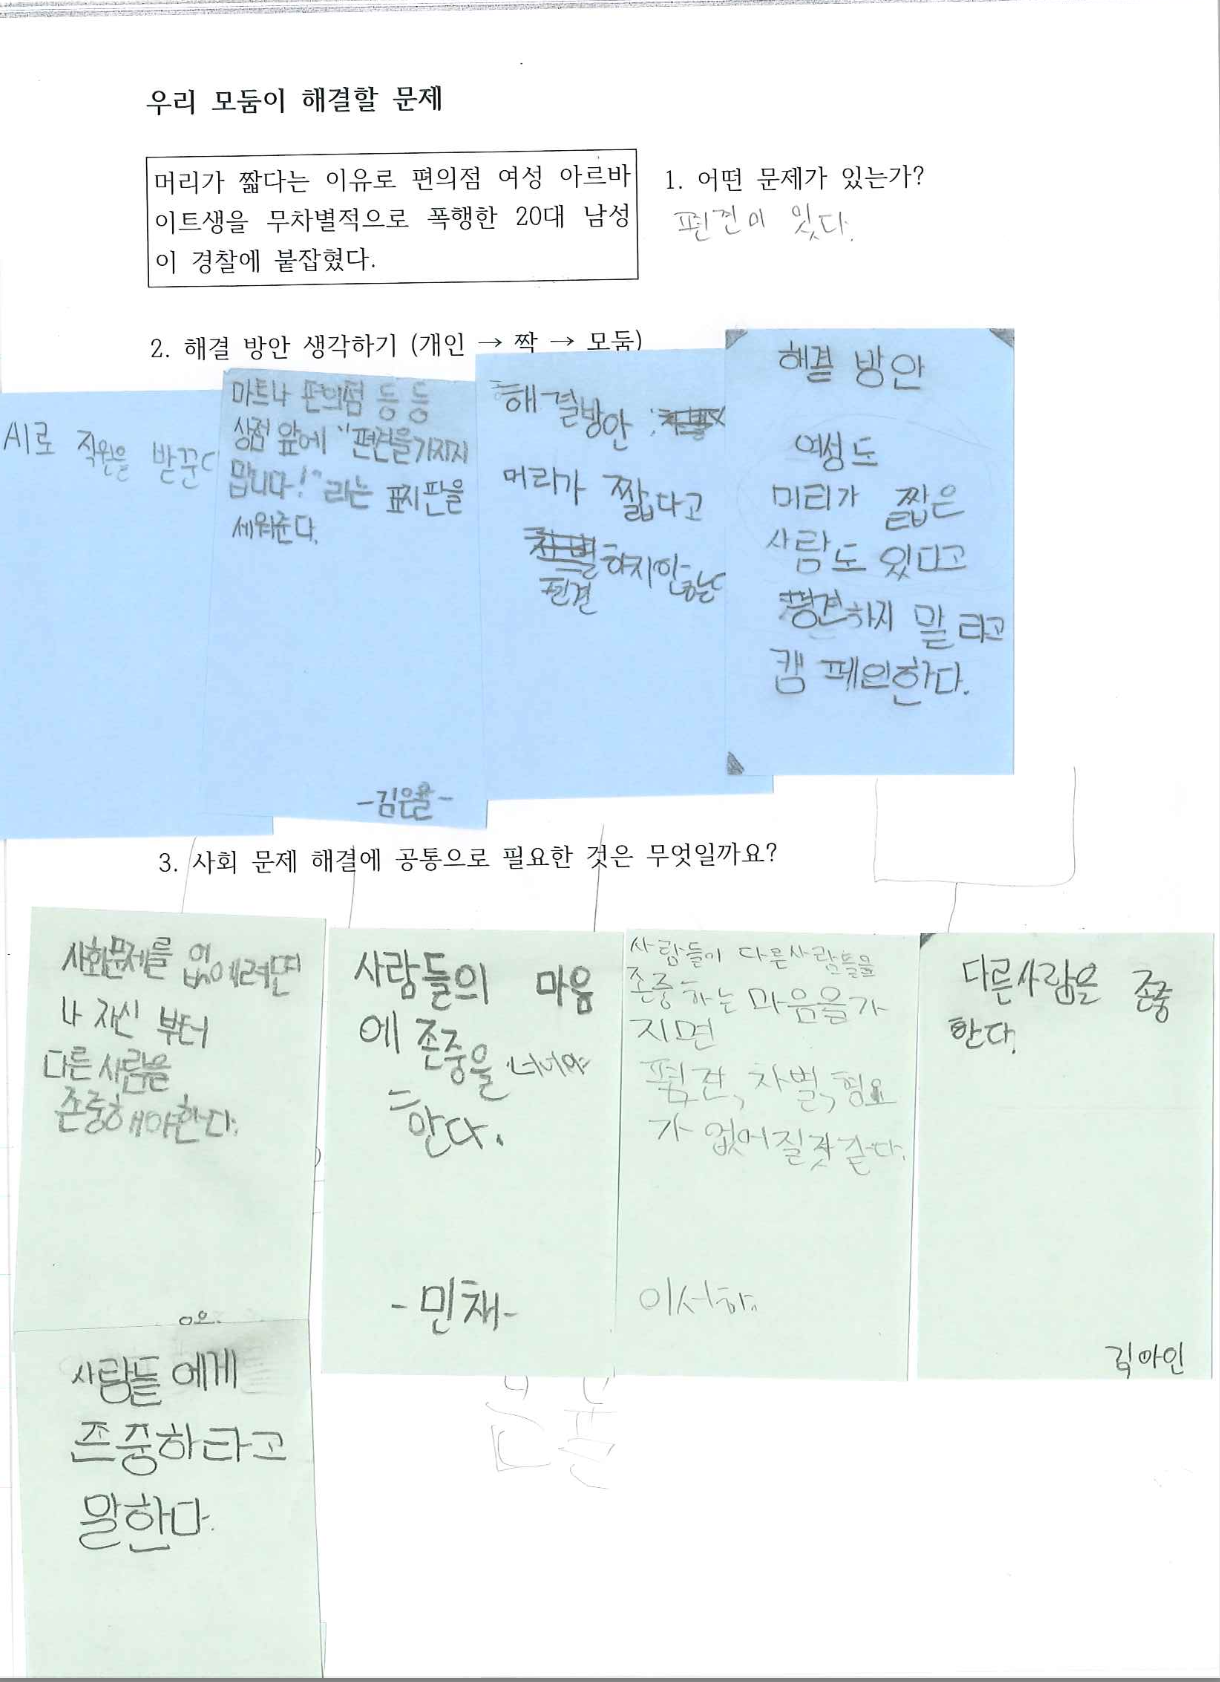 우리 모둠이 해결할 문제
머리가 짧다는 이유로 편의점 여성 아르바
이트생을 무차별적으로 폭행한 20대 남성
이 경찰에 붙잡혔다.
1. 어떤 문제가 있는가?
편견이 있다.
2. 해결 방안 생각하기 (개인 → 짝 → 모둠)
AI로 직원을 받꾼다
마트나 편의점 등 등
상점 앞에 "편견을가지지
맙니다!"라는 표지판을
세워준다.
-김은율-
해결방안 :
머리가 짧다고
편견 하지안는다
해결 방안
여성도
머리가 짧은
사람도 있다고
평견하지 말라고
캠페인한다.
3. 사회 문제 해결에 공통으로 필요한 것은 무엇일까요?
사회문제를 없에려면
나 자신 부터
다른 사람을
존중해야한다.
사람들의 마음
에 존중을 너너야
한다.
-민채-
사람들이 다른사람들을
존중하는 마음을가
지면
폄견, 차별, 혐오
가 없어질것 같다.
이서하
다른사람을 존중
한다.
김아인
사람들에게
존중하라고
말한다.